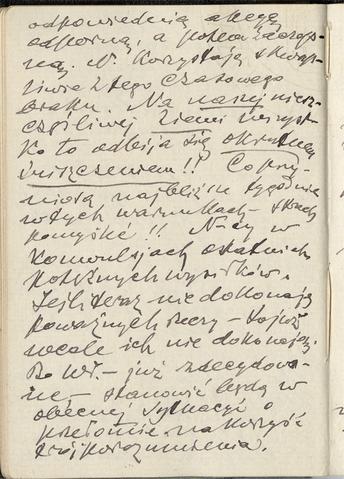 odpowiednią akcję
odporną, a potem zaczep-
ną. N. Korzystają skwap-
liwie z tego czasowego
braku. Na naszej niesz-
częśliwej ziemi wszyst-
ko to odbija się okrutnem
zniszczeniem!! Co przy-
niosą najbliższe tygodnie
w tych warunkach – strach
pomyśleć!! N-cy w
konwulsjach ostatnich
potężnych wysiłków.
Jeśli teraz nie dokonają
poważnych rzeczy – to już
wcale ich nie dokonają.
– już zdecydowa-
ne – stanowić będą w
obecnej sytuacji o
przełomie na korzyść
trójporozumienia.